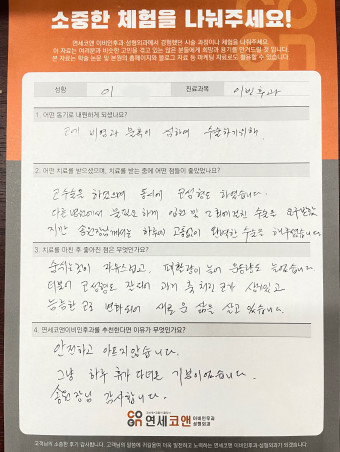 소중한 체험을 나눠주세요!
연세코앤 이비인후과·성형외과에서 경험했던 시술 과정이나 체험을 나눠주세요.
이 자료는 여러분과 비슷한 고민을 갖고 있는 많은 분들에게 희망과 용기를 안겨드릴 것 입니다.
본 자료는 학술 논문 및 본원의 홈페이지와 블로그 자료 등 마케팅 자료로도 활용될 수 있습니다.
성함 이 진료과목 이비인후과
1. 어떤 동기로 내원하게 되셨나요?
코에 비염과 축농이 심하여 수술하기위해.
2. 어떤 치료를 받으셨으며, 치료를 받는 중에 어떤 점들이 좋았었나요?
코수술은 하였으며 동시에 코성형도 하였습니다.
다른병원에서는 하게 입원 및 수술을
지만 송원장님께서는 하루에 고통없이 완벽한 수술을 해주셨습니다
3. 치료를 마친 후 좋아진 점은 무엇인가요?
숨쉬는것이 자유스럽고, 폐활량이 늘어 운동량도 늘었습니다
더불어 코성형도 잘되어 과거 축 처진 코가 생기있고
능한 코로 변화되어 새로운 삶을 살고 있습니다.
4. 연세코앤이비인후과를 추천한다면 이유가 무엇인가요?
안전하고 아프지않습니다.
그냥 하루 휴가 다녀온 기분이었습니다.
송원장님 감사합니다.
연세코앤 이비인후과 성형외과
고객님의 소중한 후기 감사합니다. 고객님의 말씀에 귀기울여 더욱 발전하고 노력하는 연세코앤 이비인후과·성형외과가 되겠습니다.